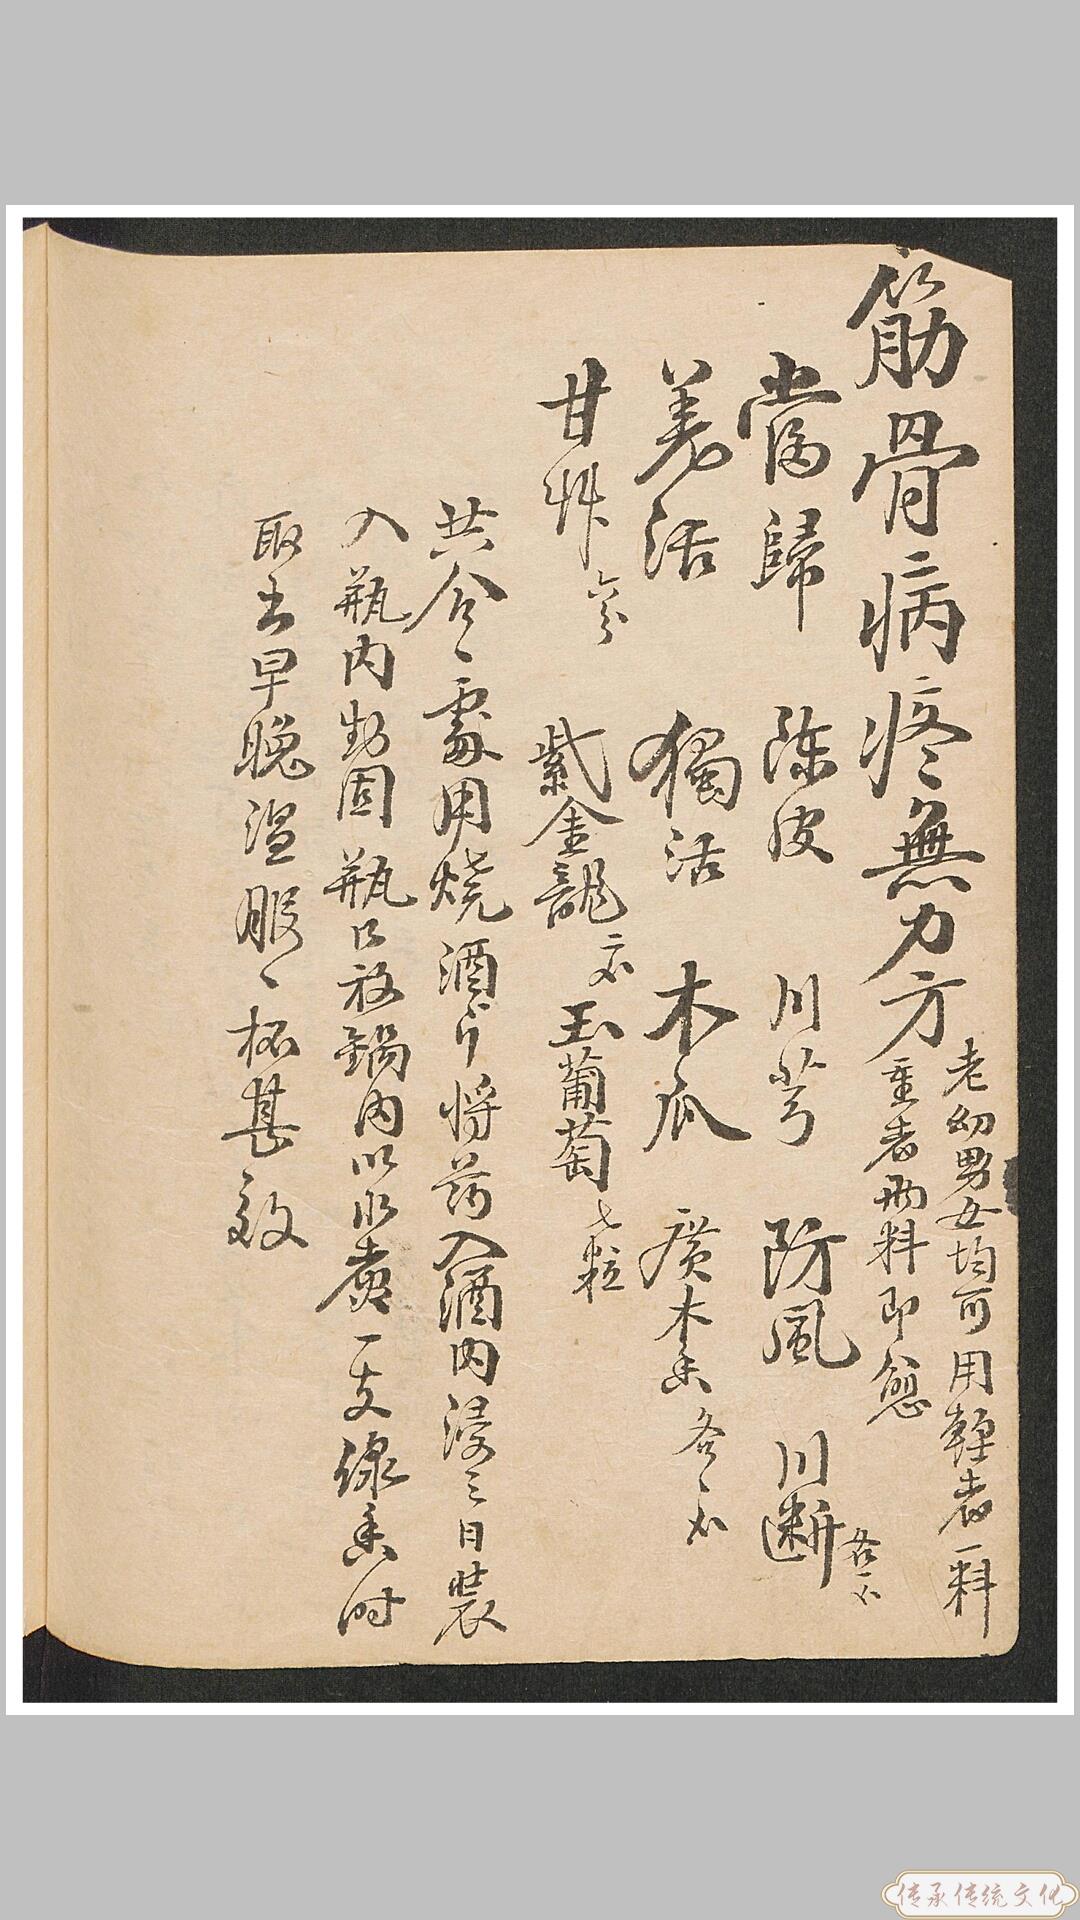 筋骨病疼無力方
老幼男女均可用輕者一料
重者两料即愈
當歸 陈皮 川芎 防風 川断 各一
羌活 獨活 木瓜 广木香 各一
甘艸 六分 紫金龍 玉葡萄 七粒
共合一處用烧酒斤将药入酒内浸三日装
入瓶内封固瓶口放鍋内以水煮一支線香时
取出早晚温服一杯甚效
传承传统文化